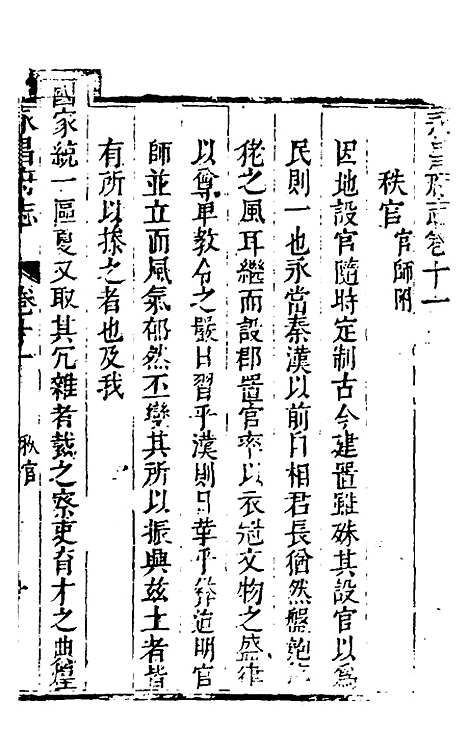 永昌府志卷十一
秩官 官師附
因地設官隨時定制古今建置雖殊其設官以為
民則一也永當秦漢以前自相君長猶然盤瓠
佬之風耳繼而設郡置官率以衣冠文物之盛律
以尊卑教令之嚴日習乎漢則日華乎俗迨明官
師並立而風氣郁然丕變其所以振興茲土者皆
有所以操之者也及我
國家統一區夏又取其冗雜者裁之察吏育才之典煌
永昌府志
卷十一
秩官